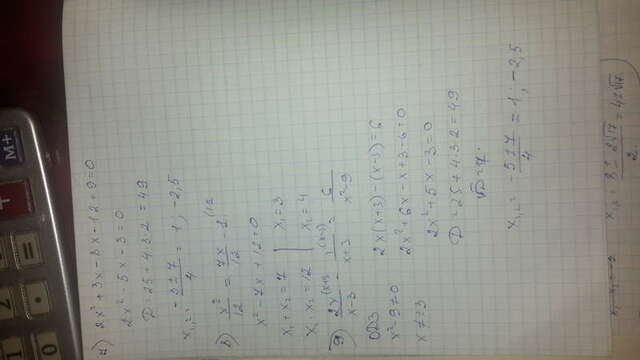 а) 2x² + 3x - 8x - 12 + 9 = 0
2x² - 5x - 3 = 0
D = 25 + 4·3·2 = 49
x₁,₂ = (-5±7)/4 = 1, -2,5
в) x²/12 = 7x/12 - 1 |·12
x² - 7x + 12 = 0
x₁ + x₂ = 7 | x₁ = 3
x₁·x₂ = 12 | x₂ = 4
д) 2x/(x-3) - 1/(x+3) = 6/(x²-9)
ОДЗ
x² - 9 ≠ 0
x ≠ ±3
2x(x+3) - (x-3) = 6
2x² + 6x - x + 3 - 6 = 0
2x² + 5x - 3 = 0
D = 25 + 4·3·2 = 49
√D = 7.
x₁,₂ = (-5±7)/4 = 1, -2,5
M+